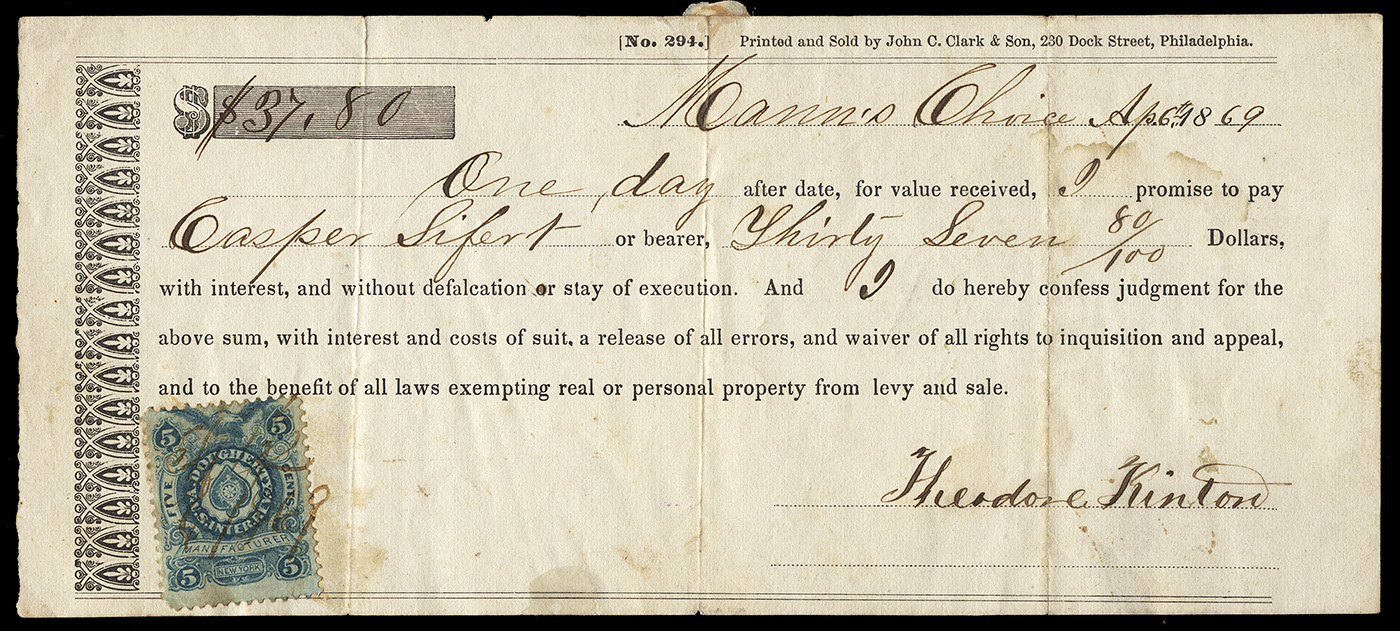 [No. 294.] Printed and Sold by John C. Clark & Son, 230 Dock Street, Philadelphia.
$ $37.80 Mann's Choice Ap 6th 1869
One day after date, for value received, I promise to pay
Casper Sifert or bearer, Thirty Seven 80/100 Dollars,
with interest, and without defalcation or stay of execution. And I do hereby confess judgment for the
above sum, with interest and costs of suit, a release of all errors, and waiver of all rights to inquisition and appeal,
and to the benefit of all laws exempting real or personal property from levy and sale.
5 5
FIVE CENTS
A. DOUGHERTY
U.S. INTER. REV.
MANUFACTURER
5 NEW YORK 5
Theodore Kinton